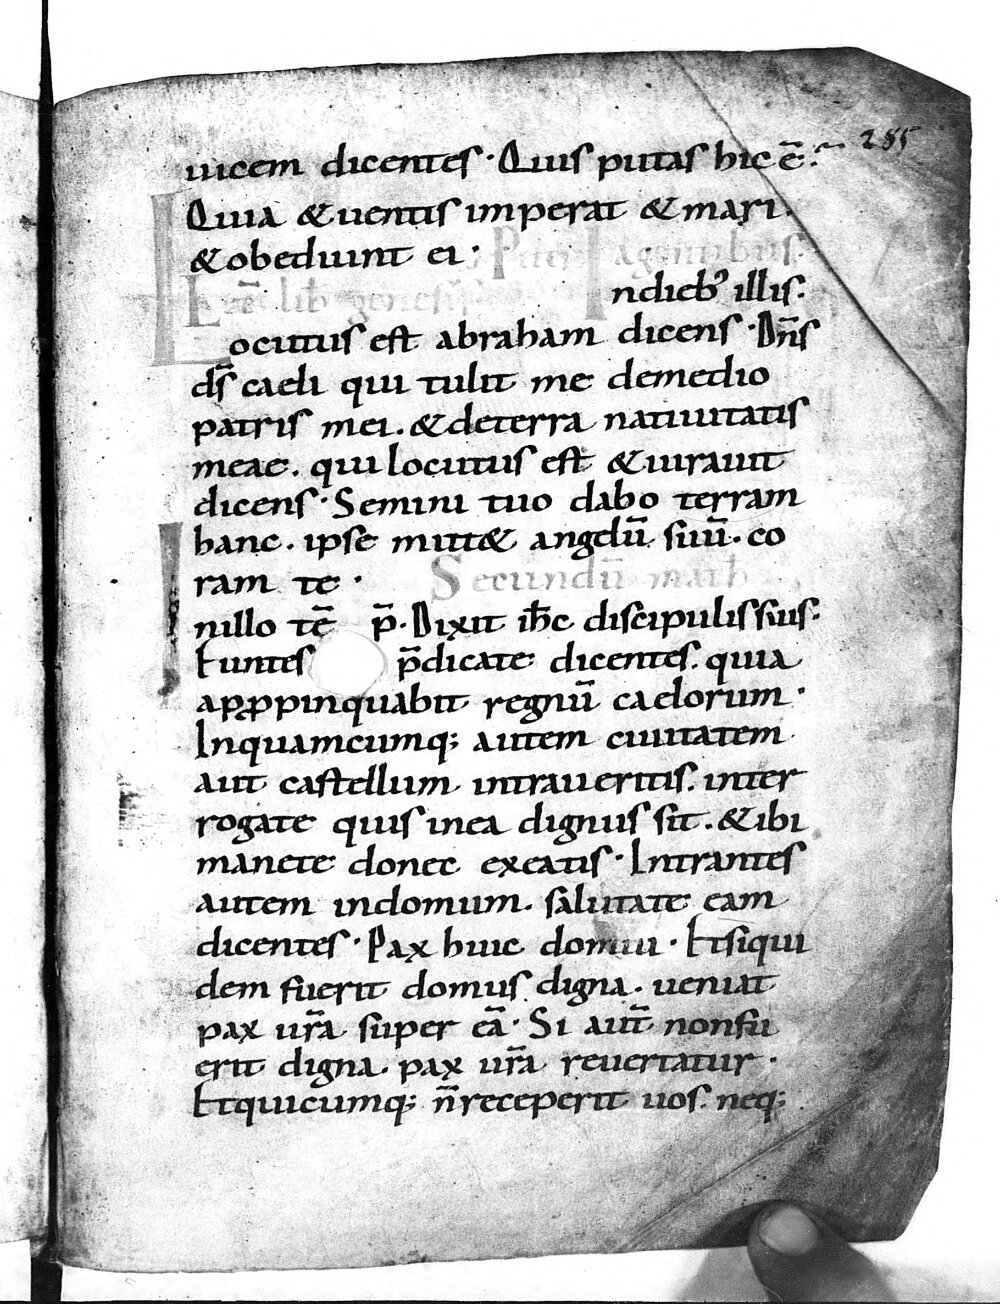 uicem dicentes · Quis putas hic ē .
285
Quia & uentis imperat & mari .
& obediunt ei ; P agentibus .
Lec̄ lib̄ genesis Indieb; illis .
Locutus est abraham dicens · Dn̄s
ds̄ caeli qui tulit me demedio
patris mei . & deterra natiuitatis
meae . qui locutus est & iurauit
dicens · Semini tuo dabo terram
hanc . ipse mitt& angelū suū . co
ram te · Secundū math
Inillo tēp̄ . Dixit ih̄c discipulis suis .
Euntes p̄dicate dicentes . quia
appropinquabit regnū caelorum ·
Inquamcumq; autem ciuitatem
aut castellum intraueritis . inter
rogate quis inea dignus sit . & ibi
manete donec exeatis · Intrantes
autem indomum . salutate eam
dicentes · Pax huic domui · Etsiqui
dem fuerit domus digna . ueniat
pax ur̄a super eā · Si aut̄ nonfu
erit digna . pax ur̄a reuertatur ·
Etquicumq; n̄ receperit uos . neq;